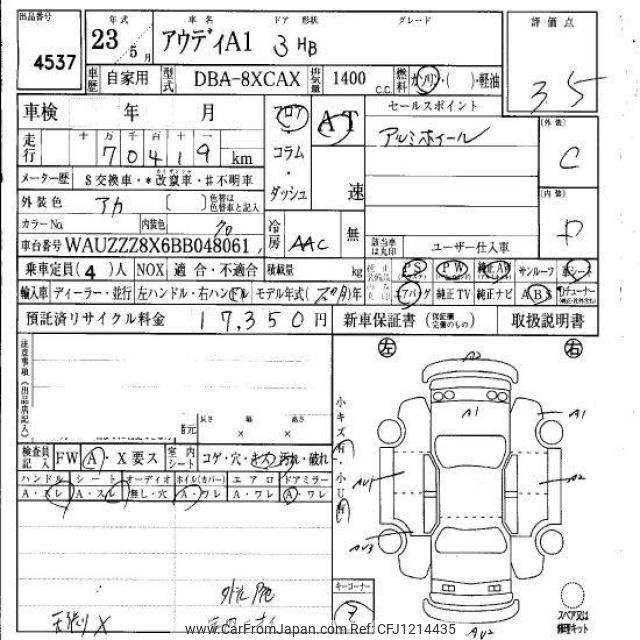 出品番号 4537
年式 23年 5月
車名 アウディA1
ドア 形状 3 HB
グレード
評価点 3 5
車歴 自家用 型式 DBA-8XCAX 排気量 1400 c.c. 燃料 ガソリン・( )・軽油
車検 年 月
フロア・コラム・ダッシュ
AT 速
セールスポイント
アルミホイール
[外装] C
[内装] D
走行 十万千百十一 70419 km
メーター歴 $交換車・*改竄車・#不明車
外装色 アカ [ ] 色替は色替車と記入
カラーNo. 内装色 クロ
車台番号 WAUZZZ8X6BB048061
冷房 AAC 無
該当車は丸印 ユーザー仕入車
乗車定員(4)人 NOX 適合・不適合 積載量 kg
PS PW 純正AW サンルーフ 革シート
輸入車 ディーラー・並行 左ハンドル・右ハンドル モデル年式( )年
エアバッグ 純正TV 純正ナビ ABS
預託済リサイクル料金 17,350円
新車保証書 (保証書完備のもの) 取扱説明書
注意事項(出品店記入)
諸元 長さ 幅 高さ
× ×
左 右
小キズ・小U
A2
A1
A1
AU1
A2
AU3
AU2
検査員記入 FW A・X要ス 室内シート コゲ・穴・キズ・汚れ・破れ
ハンドル シート オーディオ ホイル(カバー) エアロ ドアミラー
A・スレ A・スレ 無し・穴 A・ワレ A・ワレ A・ワレ
天張りX
キーコーナー
S
スペア又は修理キット
www.CarFromJapan.com Ref:CFJ1214435